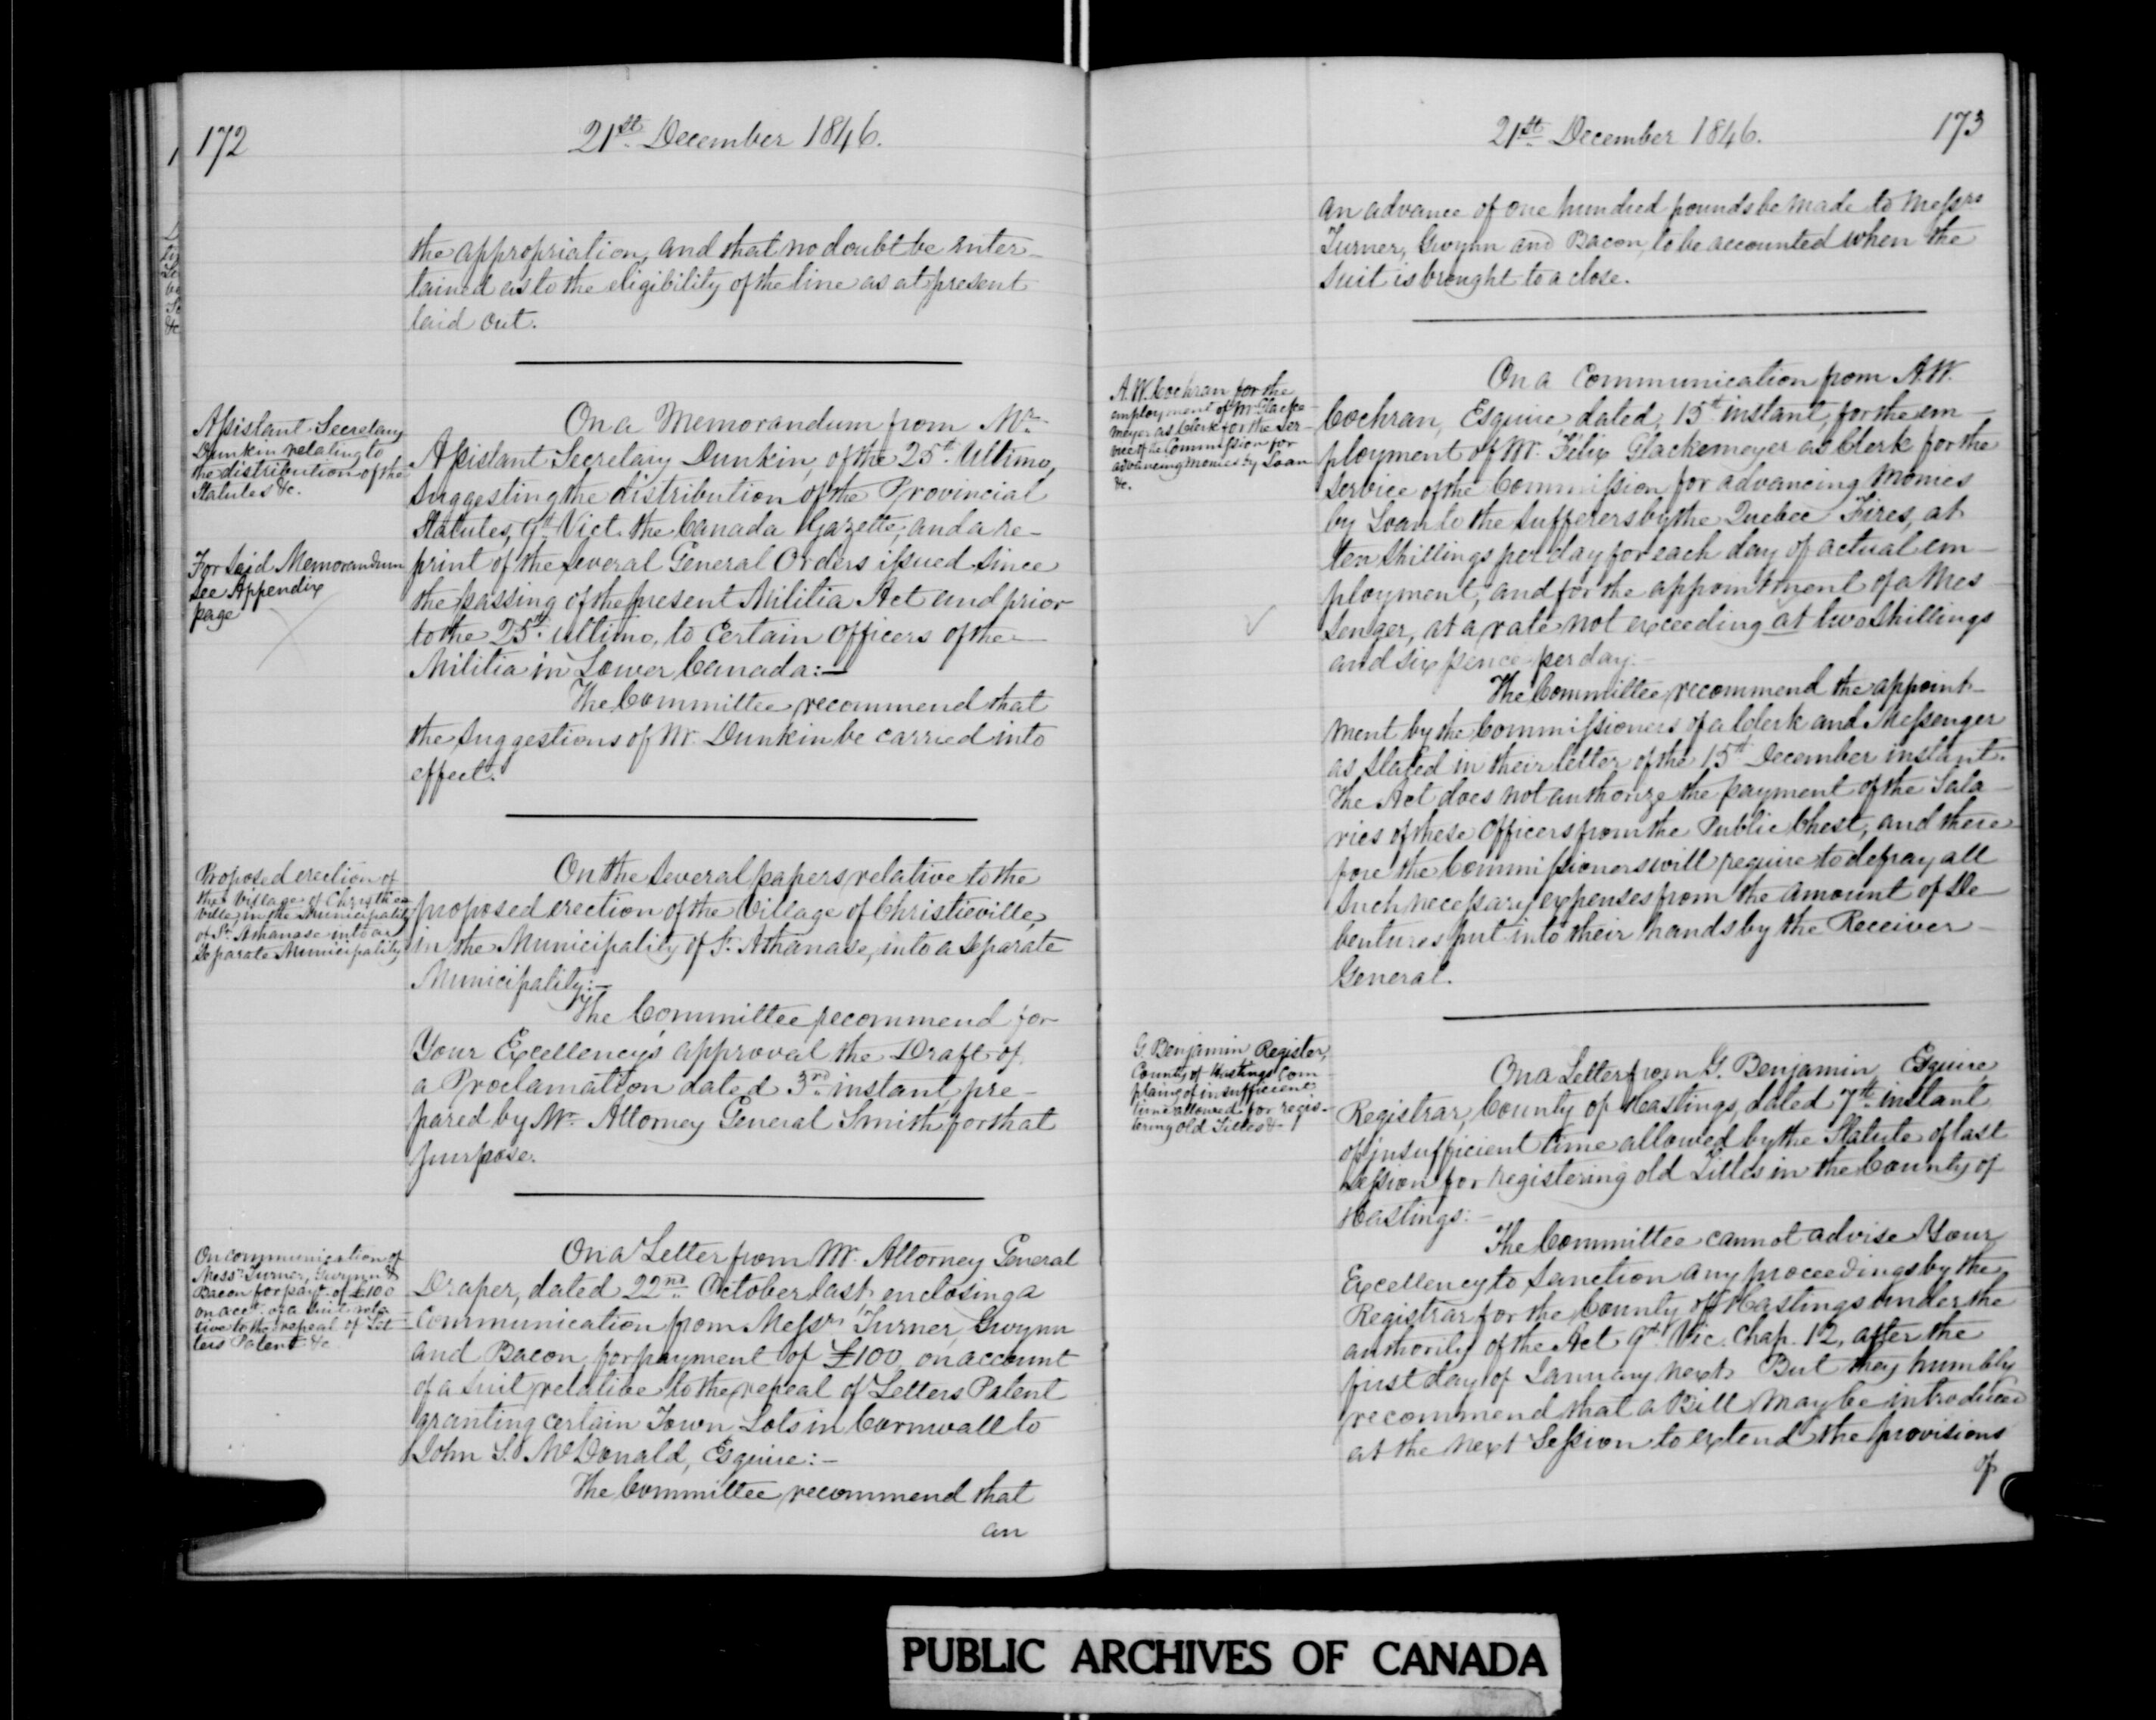 172
21st December 1846.
the appropriation, and that no doubt be enter-
tained as to the eligibility of the line as at present
laid out.
Assistant Secretary
Dunkin relating to
the distribution of the
Statutes &c.
For said Memorandum
see Appendix
page
On a Memorandum from Mr.
Assistant Secretary Dunkin, of the 25th Ultimo,
suggesting the distribution of the Provincial
Statutes, 9th Vict. the Canada Gazette, and a re-
print of the several General Orders issued since
the passing of the present Militia Act and prior
to the 25th ultimo, to certain Officers of the
Militia in Lower Canada:-
The Committee recommend that
the suggestions of Mr. Dunkin be carried into
effect.
Proposed erection of
the Village of Christie
ville, in the Municipality
of St. Athanase into a
separate Municipality
On the several papers relative to the
proposed erection of the Village of Christieville,
in the Municipality of St. Athanase, into a separate
Municipality:-
The Committee recommend for
Your Excellency's approval the Draft of
a Proclamation dated 3rd instant, pre-
pared by Mr. Attorney General Smith for that
purpose.
On communication of
Messrs Turner, Gwynn &
Bacon for payt. of £100
on acct. of a suit rela-
tive to the repeal of Let-
ters Patent &c.
On a Letter from Mr. Attorney General
Draper, dated 22nd October last, enclosing a
communication from Messrs Turner, Gwynn
and Bacon, for payment of £100, on account
of a suit relative to the repeal of Letters Patent
granting certain Town Lots in Cornwall to
John S. McDonald, Esquire:-
The Committee recommend that
an
21st December 1846.
173
an advance of one hundred pounds be made to Messrs
Turner, Gwynn and Bacon, to be accounted when the
suit is brought to a close.
A.W. Cochran for the
employment of Mr. Glacke-
meyer as Clerk for the Ser-
vice of the Commission for
advancing monies by Loan
&c.
On a Communication from A.W.
Cochran, Esquire dated, 15th instant, for the em-
ployment of Mr. Felix Glackemeyer as Clerk for the
service of the Commission for advancing Monies
by Loan to the sufferers by the Quebec Fires, at
ten shillings per day for each day of actual em-
ployment, and for the appointment of a Mes-
senger, at a rate not exceeding at two shillings
and six pence per day:-
The Committee recommend the appoint-
ment by the Commissioners, of a Clerk and Messenger
as stated in their letter of the 15th December instant.
The Act does not authorize the payment of the Sala-
ries of these Officers from the Public Chest, and there
fore the Commissioners will require to defray all
such necessary expenses from the amount of De-
bentures put into their hands by the Receiver-
General.
G. Benjamin Register,
County of Hastings com-
plaing of insufficient
time allowed for regis-
tering old Titles &-
On a Letter from G. Benjamin, Esquire,
Registrar, County of Hastings, dated 7th instant
of insufficient time allowed by the Statute of last
Session for registering old Titles in the County of
Hastings:-
The Committee cannot advise Your
Excellency to sanction any proceedings by the
Registrar for the County of Hastings under the
authority of the Act 9th Vic. Chap. 12, after the
first day of January next. But they humbly
recommend that a Bill may be introduced
at the next Session to extend the provisions
of
PUBLIC ARCHIVES OF CANADA